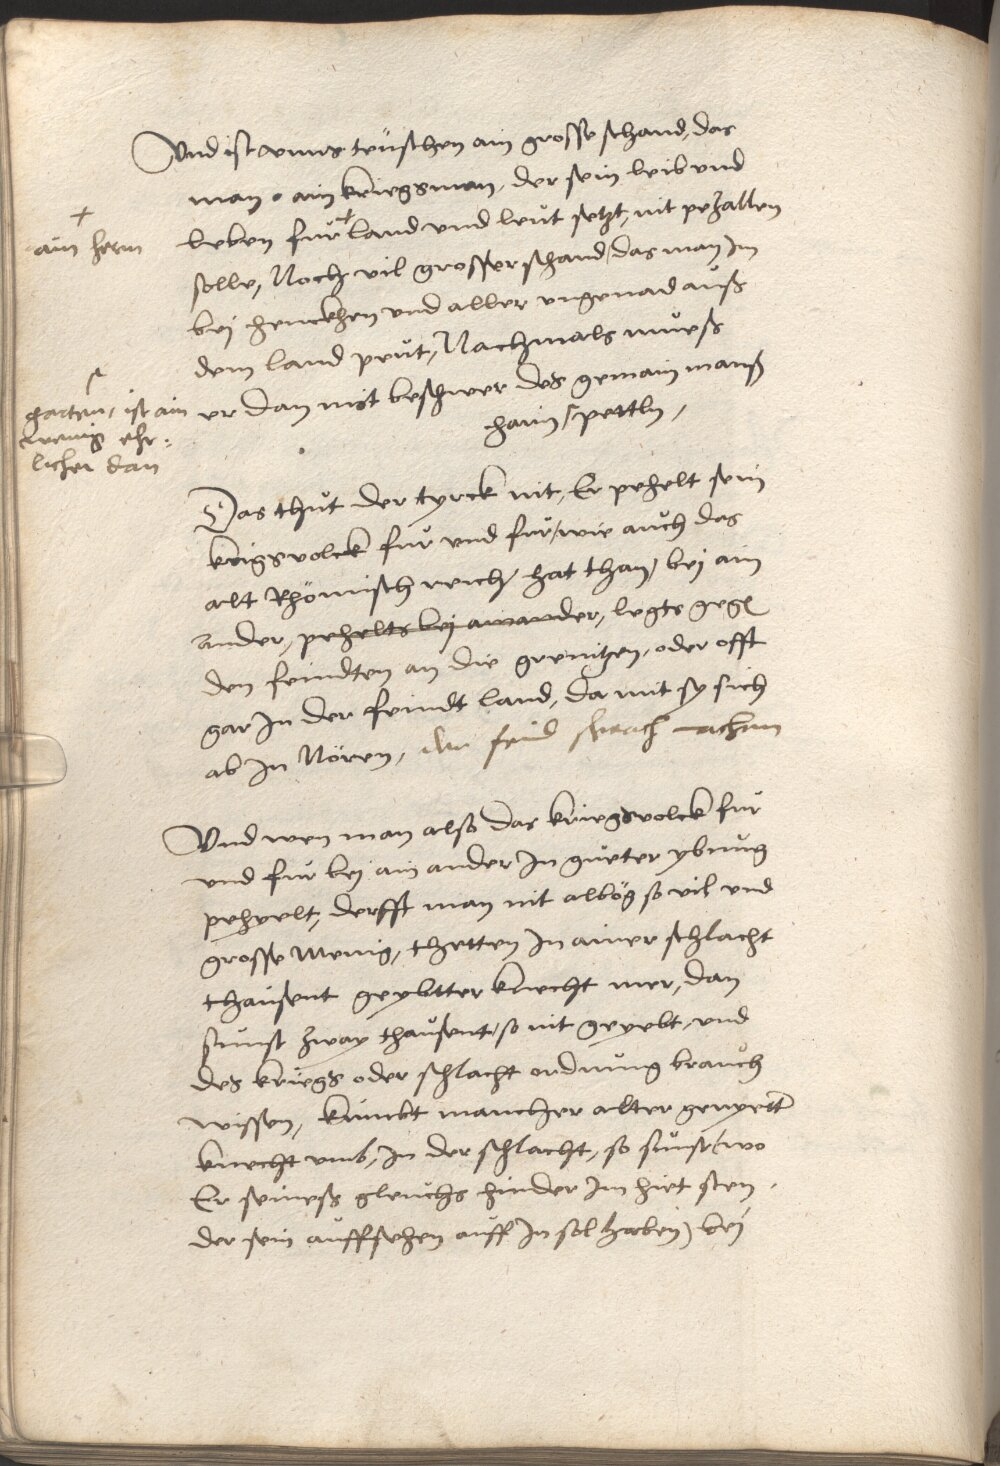 Vnd ist vnns teutschen ain grosse schand, das
man ain kriegsman, der sein leib vnd
leben fur + land vnd leut setzt, nit pezallen
+
ain herrn
solle, Noch vil grosser schand, das man Im
bei henckhen vnd aller vngenad auss
dem land peut, Nachmals muess
er dan mit beschwer des gemain manss
harin / pettln,
garten, ist ain
wenig ehr:
licher dan
Das thut der tyrck nit, Er pehelt sein
kriegsvolck fur vnd fur / wie auch das
alt Rhömisch reich, hat than, bei ain
ander, pehelts bei ainander, legts gegen
den feindten an die grenitzen, oder offt
gar In der feindt land, da mit sy sich
ab In Nören, der feind sprach
Vnd wen man also das kriegsvolck fur
vnd fur bei ain ander In gueter ybung
pehyelt, derfft man nit albög so vil vnd
grosse Menig, thetten In ainer schlacht
thausent geybtter knecht mer, dan
sunst zway thausent, so nit geyebt, vnd
des kriegs oder schlacht ordnung brauch
wissen, kumbt mancher alter geyebt
knecht vmb, In der schlacht, so sunst, wo
Er seiness gleichs hinder Im hiet sten,
der sein auffsehen auff In sol haben) bei